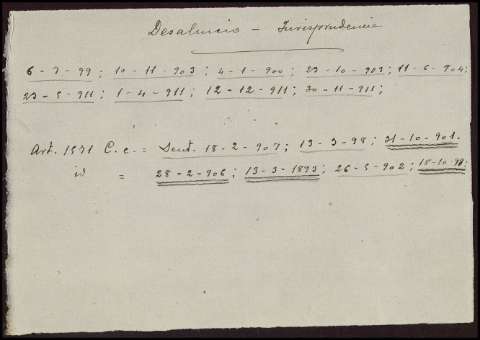 Desahucio - Jurisprudencia
6-7-99; 10-11-903; 4-1-900; 23-10-903; 11-6-904;
23-5-911; 1-4-911; 12-12-911; 30-11-911;
Art. 1571 C.c. = Sent. 18-2-907; 13-3-98; 31-10-901.
id = 28-2-906; 13-3-1893; 26-5-902; 18-10-98;